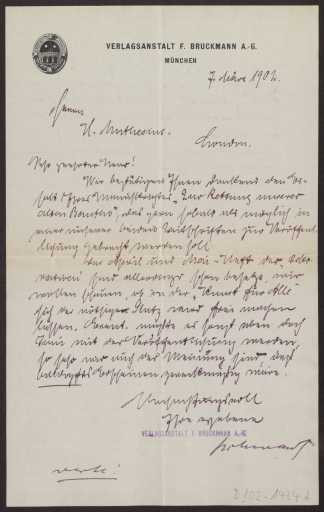 VERLAGSANSTALT F. BRUCKMANN A.-G.
MÜNCHEN
7. März 1902.
Herrn
H. Muthesius.
London.
Sehr geehrter Herr!
Wir bestätigen Ihnen dankend den
Ihres "Zur Rettung unserer
alten Bauten", das gern sobald als möglich in
einer unserer beiden Zeitschriften zur Veröffent-
lichung gebracht werden soll.
Im April und Mai-Heft der
sind allerdings schon besetzt, wir
wollen schauen, ob in der "Kunst für Alle"
sich der nötige Platz wird frei machen
lassen. müsste es sonst eben doch
Juni mit der Veröffentlichung werden,
so sehr wir auch der Meinung sind, dass
Erscheinen zweckmässig wäre.
Hochachtungsvoll
Ihre ergebene
VERLAGSANSTALT F. BRUCKMANN A.-G.
D 102 -